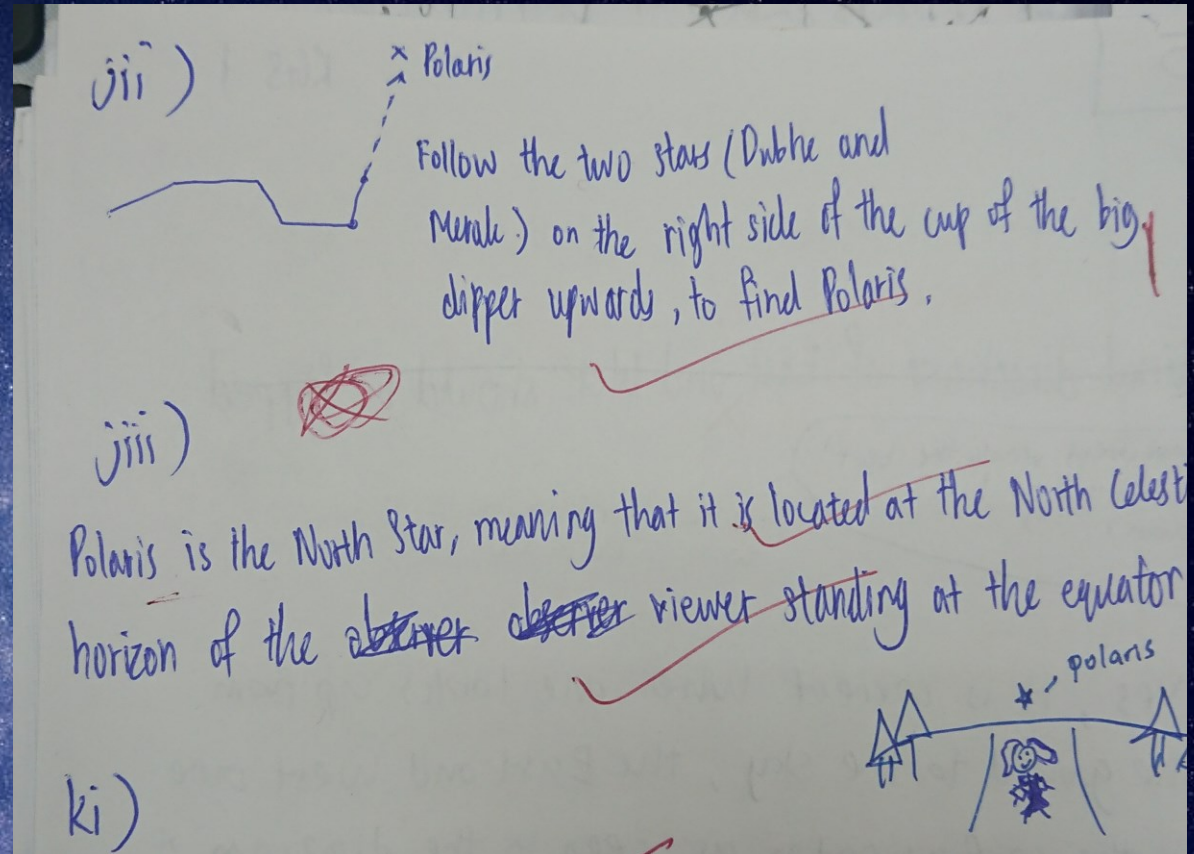 jii)
Polaris
Follow the two stars (Dubhe and
Merak) on the right side of the cup of the big
dipper upwards, to find Polaris.
jiii)
Polaris is the North Star, meaning that it is located at the North Celest
horizon of the viewer standing at the equator
polaris
ki)